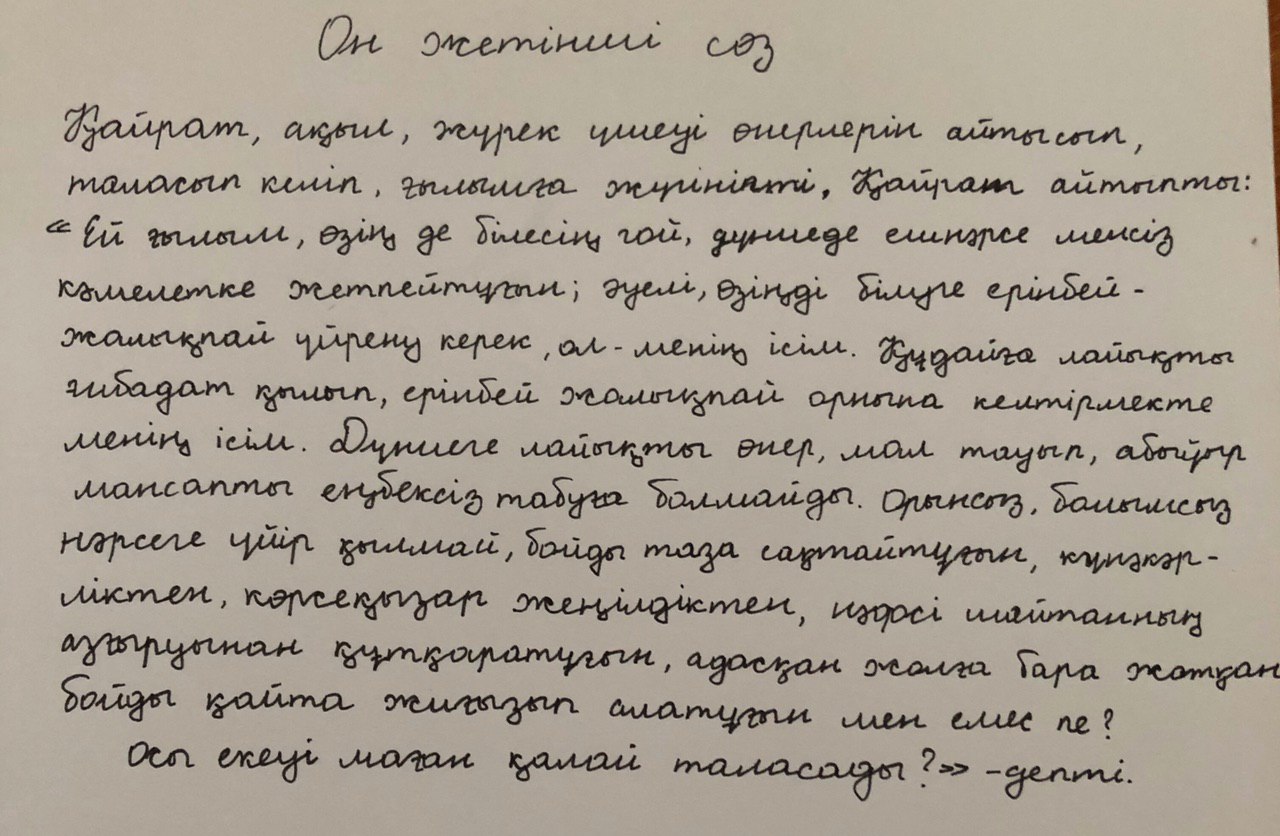 Он жетінші сөз
Қайрат, ақыл, жүрек үшеуі өнерлерін айтысып,
таласып келіп, ғылымға жүгініпті. Қайрат айтыпты:
«Ей ғылым, өзің де білесің ғой, дүниеде ешнәрсе менсіз
кәмелетке жетпейтұғын; әуелі, өзіңді білуге ерінбей-
жалықпай үйрену керек, ол - менің ісім. Құдайға лайықты
ғибадат қылып, ерінбей жалықпай орнына келтірмекте
менің ісім. Дүниеге лайықты өнер, мал тауып, абұйыр
мансапты еңбексіз табуға болмайды. Орынсыз, болымсыз
нәрсеге үйір қылмай, бойды таза сақтайтұғын, күнәкәр-
ліктен, көрсеқызар жеңілдіктен, нәфсі шайтанның
азғыруынан құтқаратұғын, адасқан жолға бара жатқан
бойды қайта жиғызып алатұғын мен емес пе?
Осы екеуі маған қалай таласады?» -депті.